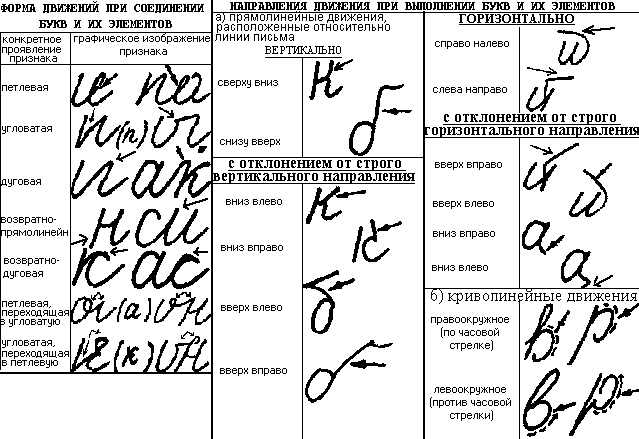 ФОРМА ДВИЖЕНИЙ ПРИ СОЕДИНЕНИИ
БУКВ И ИХ ЭЛЕМЕНТОВ
конкретное
проявление
признака
графическое изображение
признака
петлевая
угловатая
(п)
дуговая
возвратно-
прямолинейн
возвратно-
дуговая
петлевая,
переходящая
в угловатую
(а)
угловатая,
переходящая
в петлевую
(к)
НАПРАВЛЕНИЯ ДВИЖЕНИЯ ПРИ ВЫПОЛНЕНИИ БУКВ И ИХ ЭЛЕМЕНТОВ
а) прямолинейные движения,
расположенные относительно
линии письма
ВЕРТИКАЛЬНО
сверху вниз
к
снизу вверх
б
с отклонением от строго
вертикального направления
вниз влево
к
вниз вправо
к
вверх влево
б
вверх вправо
б
ГОРИЗОНТАЛЬНО
справо налево
й
слева направо
й
с отклонением от строго
горизонтального направления
вверх вправо
й
вверх влево
й
вниз вправо
а
вниз влево
а
б) криволинейные движения
правоокружное
(по часовой
стрелке)
в р
левоокружное
(против часовой
стрелки)
в р